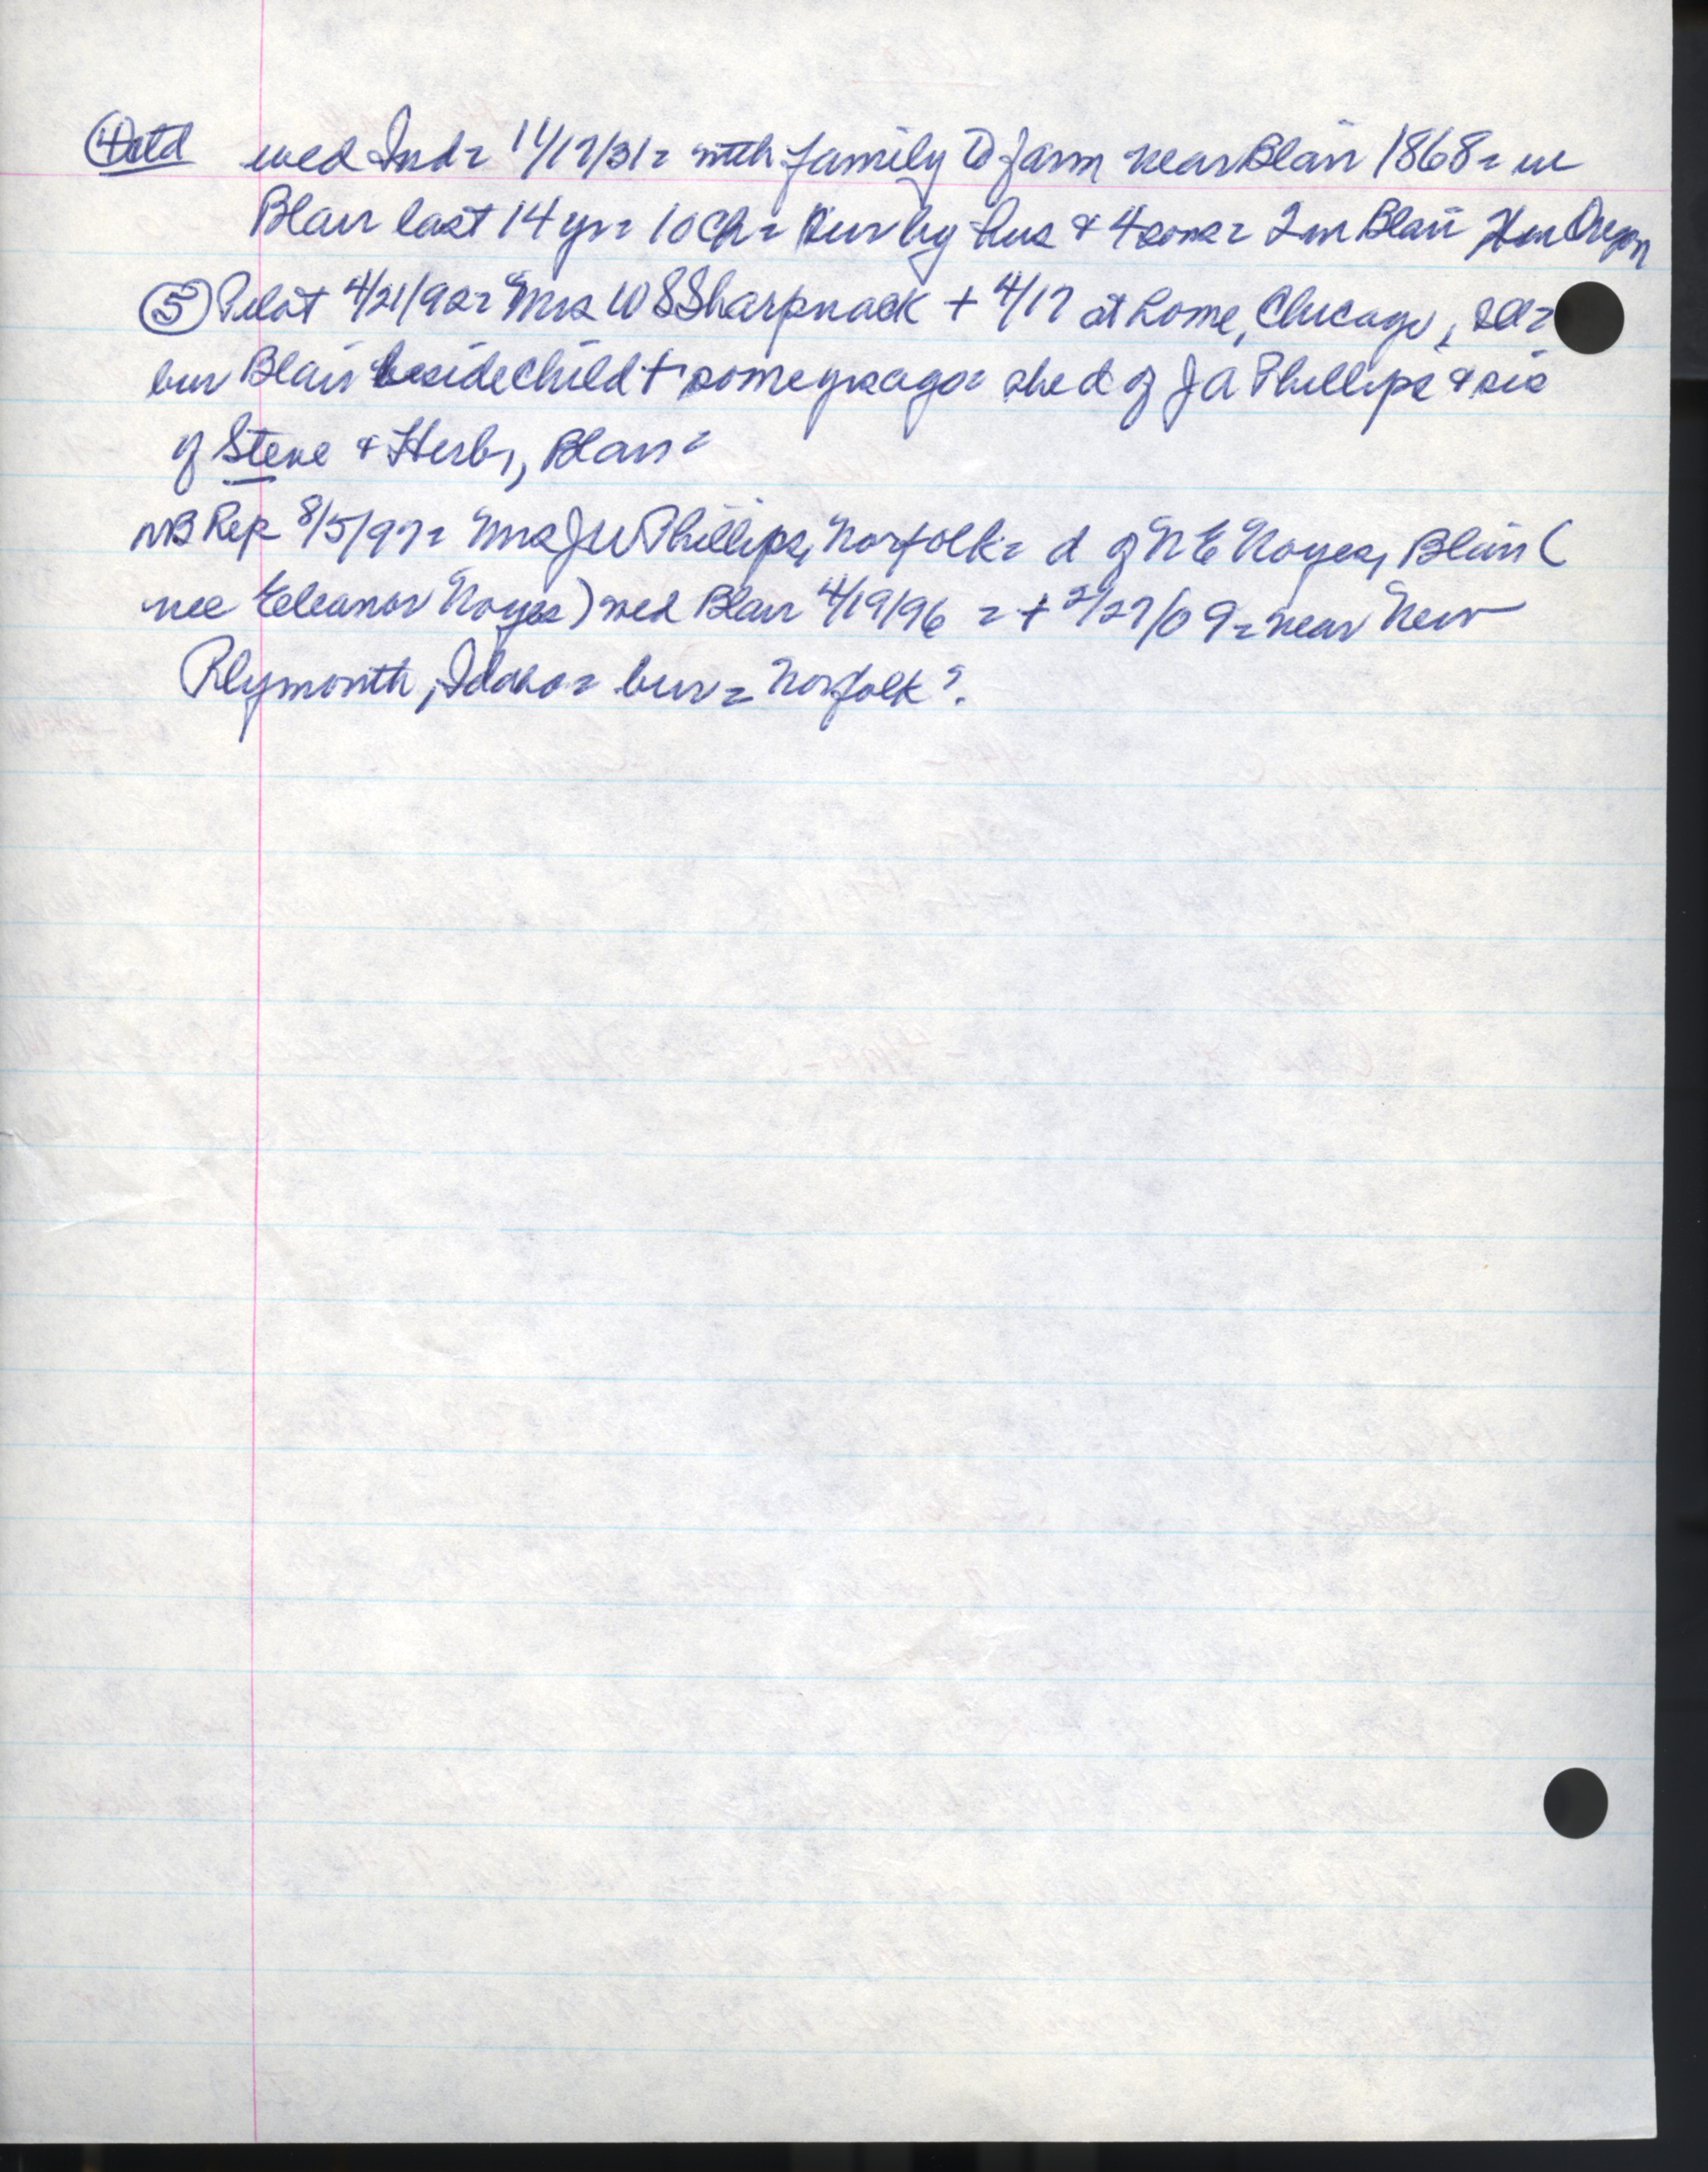 ④ctd wed Ind = 11/17/31 = with family to farm near Blair 1868 = in
Blair last 14 yr = 10 ch = surv by hus & 4 sons = 2 in Blair 2 in Oregon
⑤ Pilot 4/21/92 = Mrs W S Sharpnack + 4/17 at home, Chicago, Ill =
bur Blair beside child + some yrs ago = she d of J A Phillips & sis
of Steve & Herb, Blair =
NB Rep 8/5/97 = Mrs J W Phillips, Norfolk = d of N E Noyes, Blair (
nee Eleanor Noyes) wed Blair 4/19/96 = + 2/27/09 = near New
Plymouth, Idaho = bur = Norfolk?.